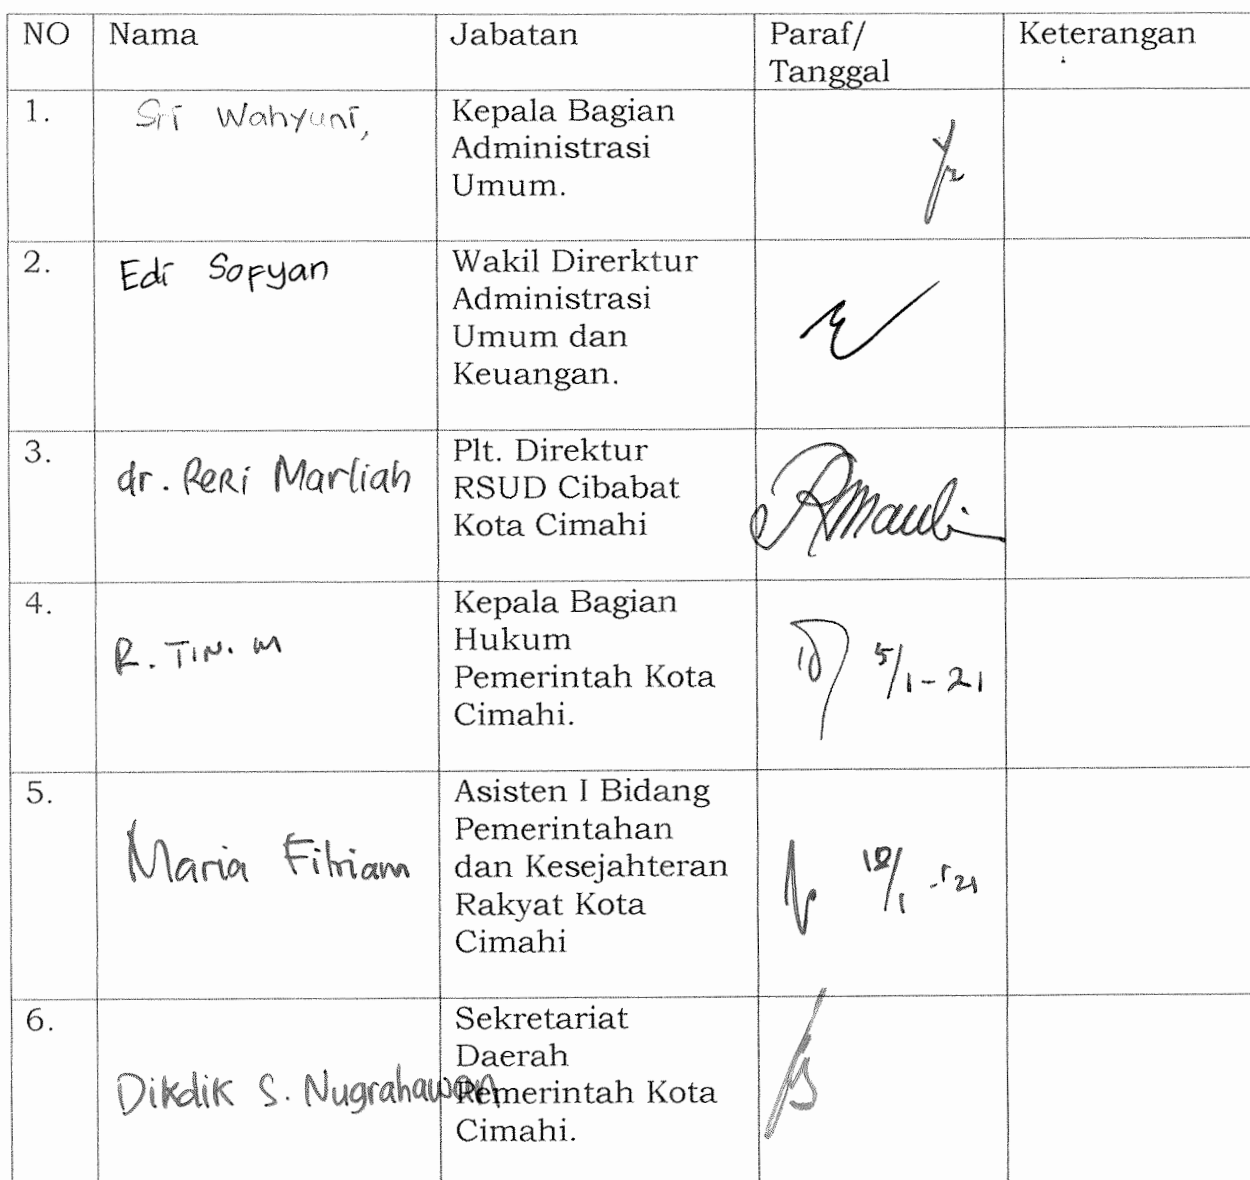 NO Nama Jabatan Paraf/ Tanggal Keterangan
1. Sri Wahyuni, Kepala Bagian
Administrasi
Umum.
2. Edi Sofyan Wakil Direrktur
Administrasi
Umum dan
Keuangan.
3. dr. Reri Marliah Plt. Direktur
RSUD Cibabat
Kota Cimahi
4. R. TIN. M Kepala Bagian
Hukum
Pemerintah Kota
Cimahi.
5/1-21
5. Maria Fitriani Asisten I Bidang
Pemerintahan
dan Kesejahteran
Rakyat Kota
Cimahi
6. Dikdik S. Nugrahawan Sekretariat
Daerah
Pemerintah Kota
Cimahi.